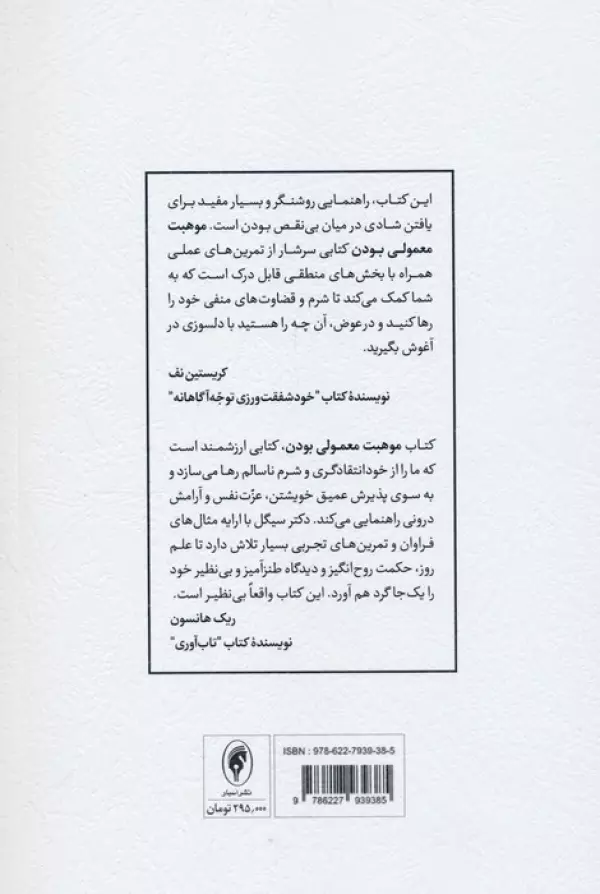 این کتاب، راهنمایی روشنگر و بسیار مفید برای
یافتن شادی در میان بی‌نقص بودن است. موهبت
معمولی بودن کتابی سرشار از تمرین‌های عملی
همراه با بخش‌های منطقی قابل درک است که به
شما کمک می‌کند تا شرم و قضاوت‌های منفی خود را
رها کنید و درعوض، آن چه را هستید با دلسوزی در
آغوش بگیرید.
کریستین نف
نویسندهٔ کتاب "خودشفقت‌ورزی توجّه‌آگاهانه"
کتاب موهبت معمولی بودن، کتابی ارزشمند است
که ما را از خودانتقادگری و شرم ناسالم رها می‌سازد و
به سوی پذیرش عمیق خویشتن، عزّت‌نفس و آرامش
درونی راهنمایی می‌کند. دکتر سیگل با ارایه مثال‌های
فراوان و تمرین‌های تجربی بسیار تلاش دارد تا علم
روز، حکمت روح‌انگیز و دیدگاه طنزآمیز و بی‌نظیر خود
را یک‌جا گرد هم آورد. این کتاب واقعاً بی‌نظیر است.
ریک هانسون
نویسندهٔ کتاب "تاب‌آوری"
ISBN : 978-622-7939-38-5
9 786227 939385
نشر اسبار
۲۹۵,۰۰۰ تومان